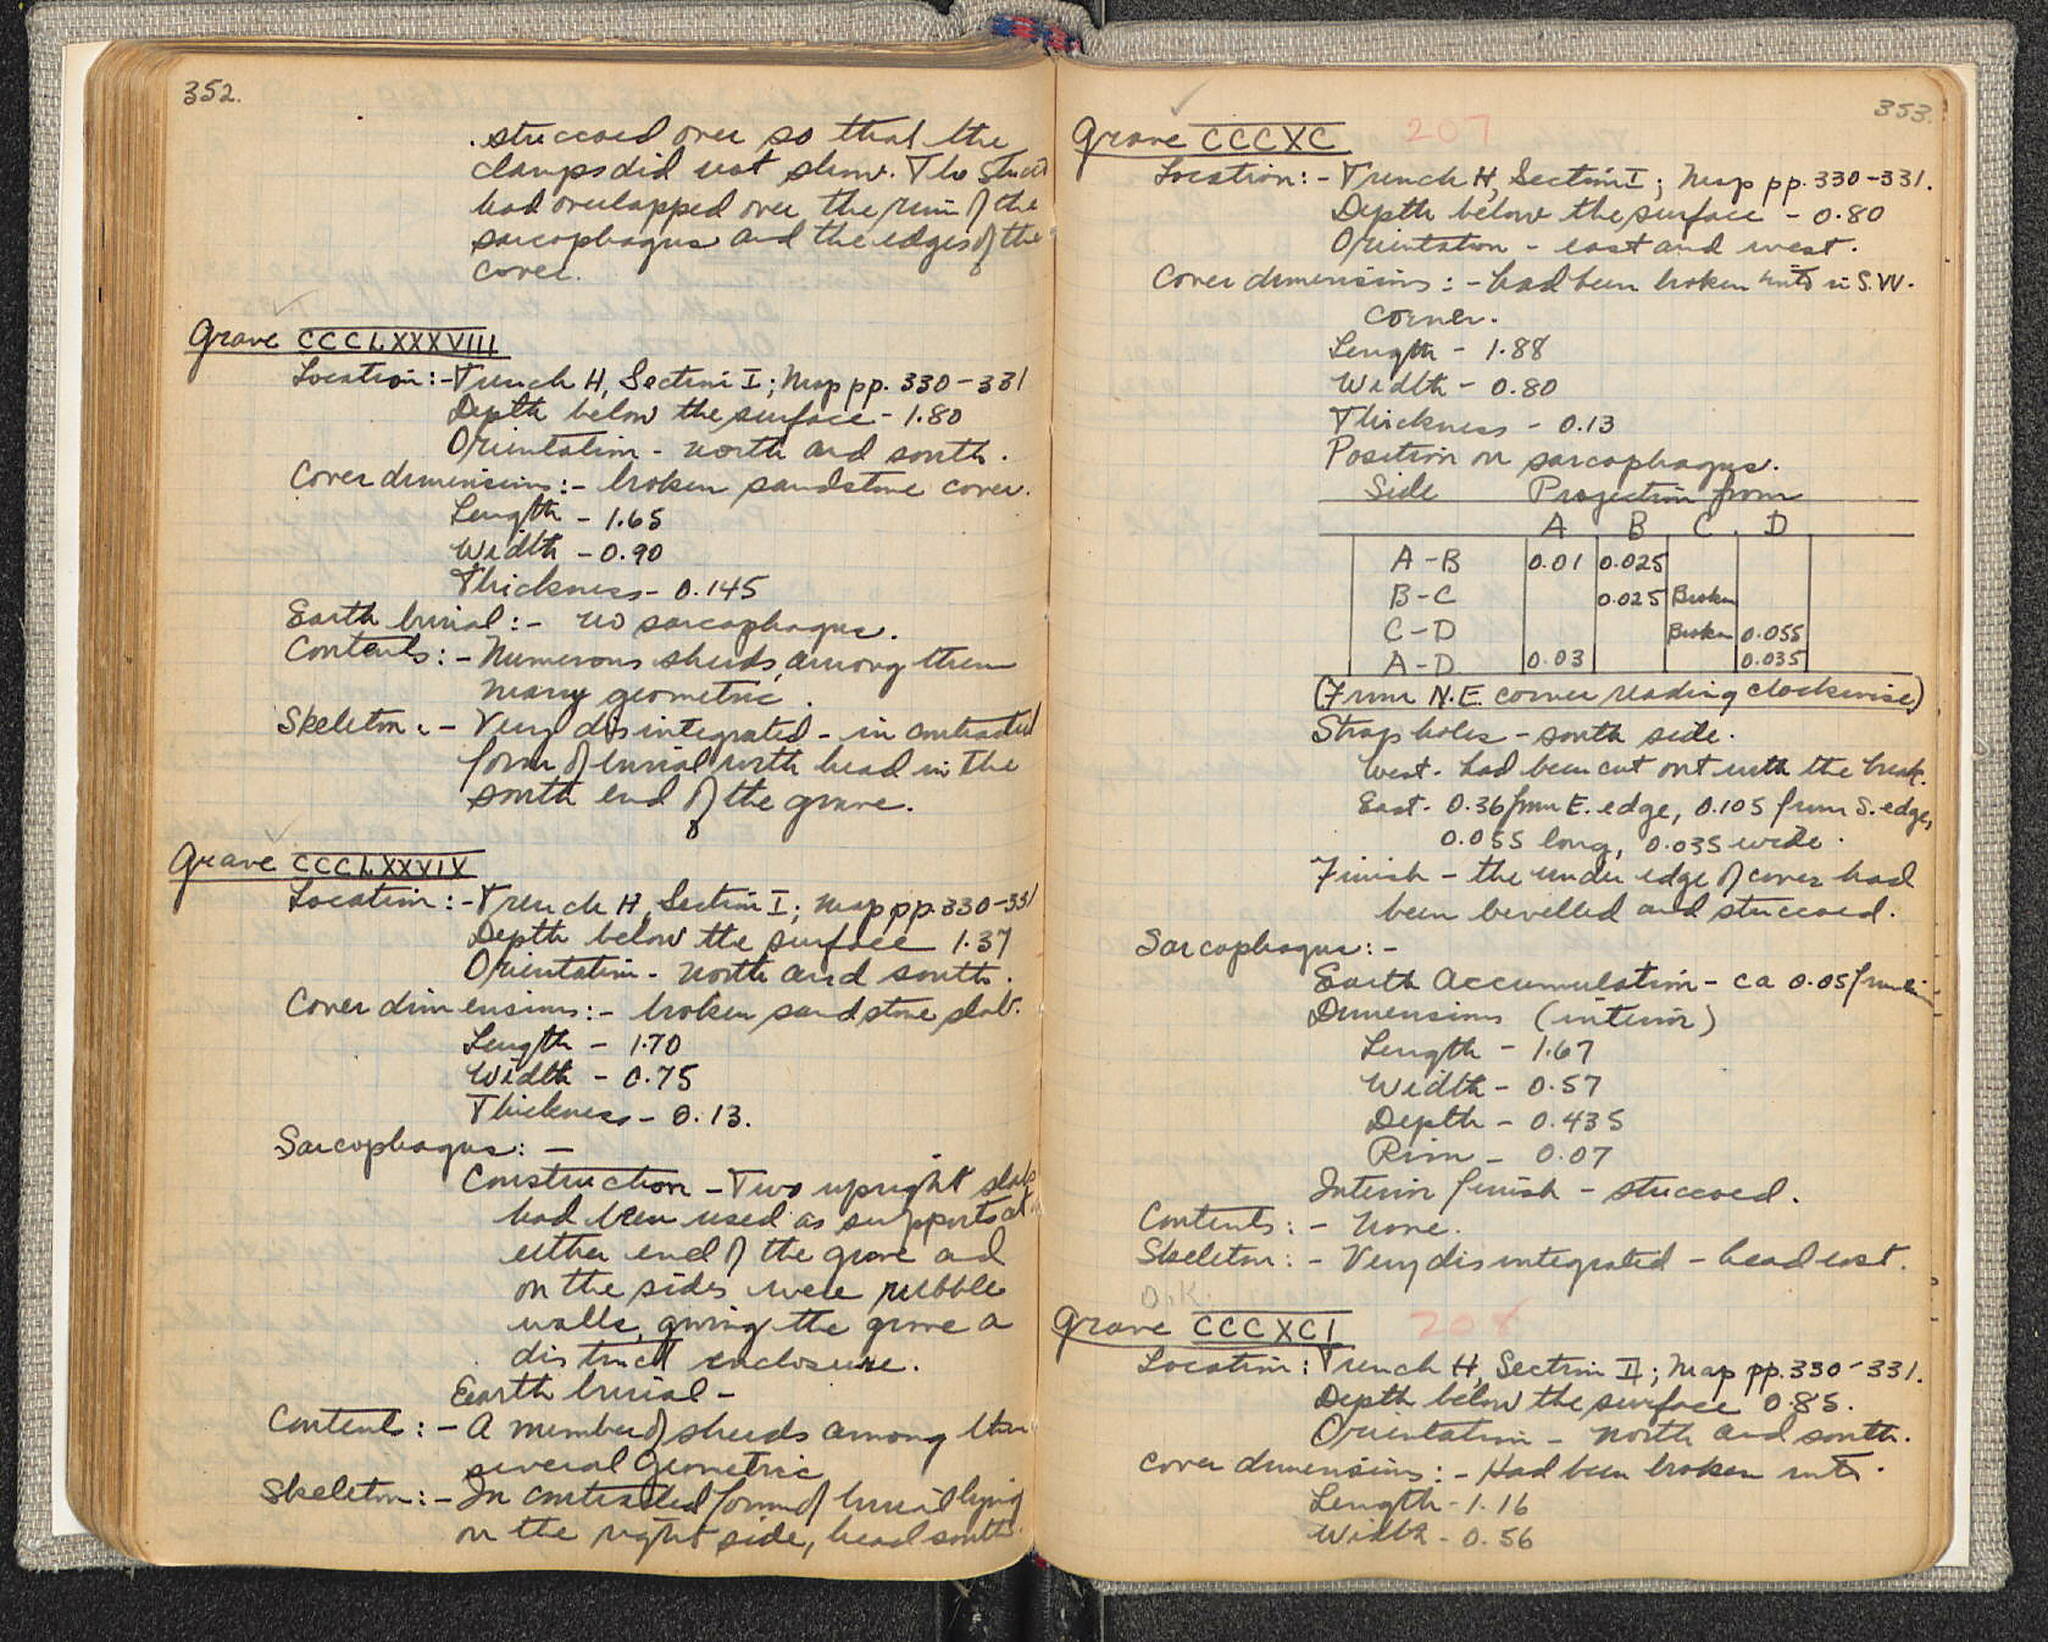 352.
stuccoed over so that the
clamps did not show. The stucco
had overlapped over the rim of the
sarcophagus and the edges of the
cover.
Grave CCCLXXXVIII
Location:- Trench H, Section I; Map pp. 330-331
Depth below the surface - 1.80
Orientation - north and south.
Cover dimensions:- broken sandstone cover.
Length - 1.65
Width - 0.90
Thickness - 0.145
Earth burial:- no sarcophagus.
Contents:- Numerous sherds, among them
many geometric.
Skeleton:- Very disintegrated - in contracted
form of burial with head in the
south end of the grave.
Grave CCCLXXVIX
Location:- Trench H, Section I; Map pp. 330-331
Depth below the surface 1.37
Orientation - north and south.
Cover dimensions:- broken sandstone slab.
Length - 1.70
Width - 0.75
Thickness - 0.13.
Sarcophagus: -
Construction - Two upright slabs
had been used as supports at
either end of the grave and
on the sides were rubble
walls, giving the grave a
distinct enclosure.
Earth burial -
Contents:- A number of sherds among them
several Geometric
Skeleton:- In contracted form of burial lying
on the right side, head south.
353.
Grave CCCXC 207
Location:- Trench H, Section I; Map pp. 330-331.
Depth below the surface - 0.80
Orientation - east and west.
Cover dimensions:- had been broken into in S.W.
corner.
Length - 1.88
Width - 0.80
Thickness - 0.13
Position on sarcophagus.
Side Projection from
A B C D
A-B 0.01 0.025
B-C 0.025 Broken
C-D Broken 0.055
A-D 0.03 0.035
(From N.E. corner reading clockwise)
Strap holes - south side.
West. had been cut out with the break.
East. 0.36 from E. edge, 0.105 from S. edge,
0.055 long, 0.035 wide.
Finish - the under edge of cover had
been bevelled and stuccoed.
Sarcophagus:-
Earth Accumulation - ca 0.05 from
Dimensions (interior)
Length - 1.67
Width - 0.57
Depth - 0.435
Rim - 0.07
Interior finish - stuccoed.
Contents:- None.
Skeleton:- Very disintegrated - head east.
O.K.
Grave CCCXCI 208
Location: Trench H, Section II; Map pp. 330-331.
Depth below the surface 0.85.
Orientation - north and south.
Cover dimensions:- Had been broken into.
Length - 1.16
Width - 0.56